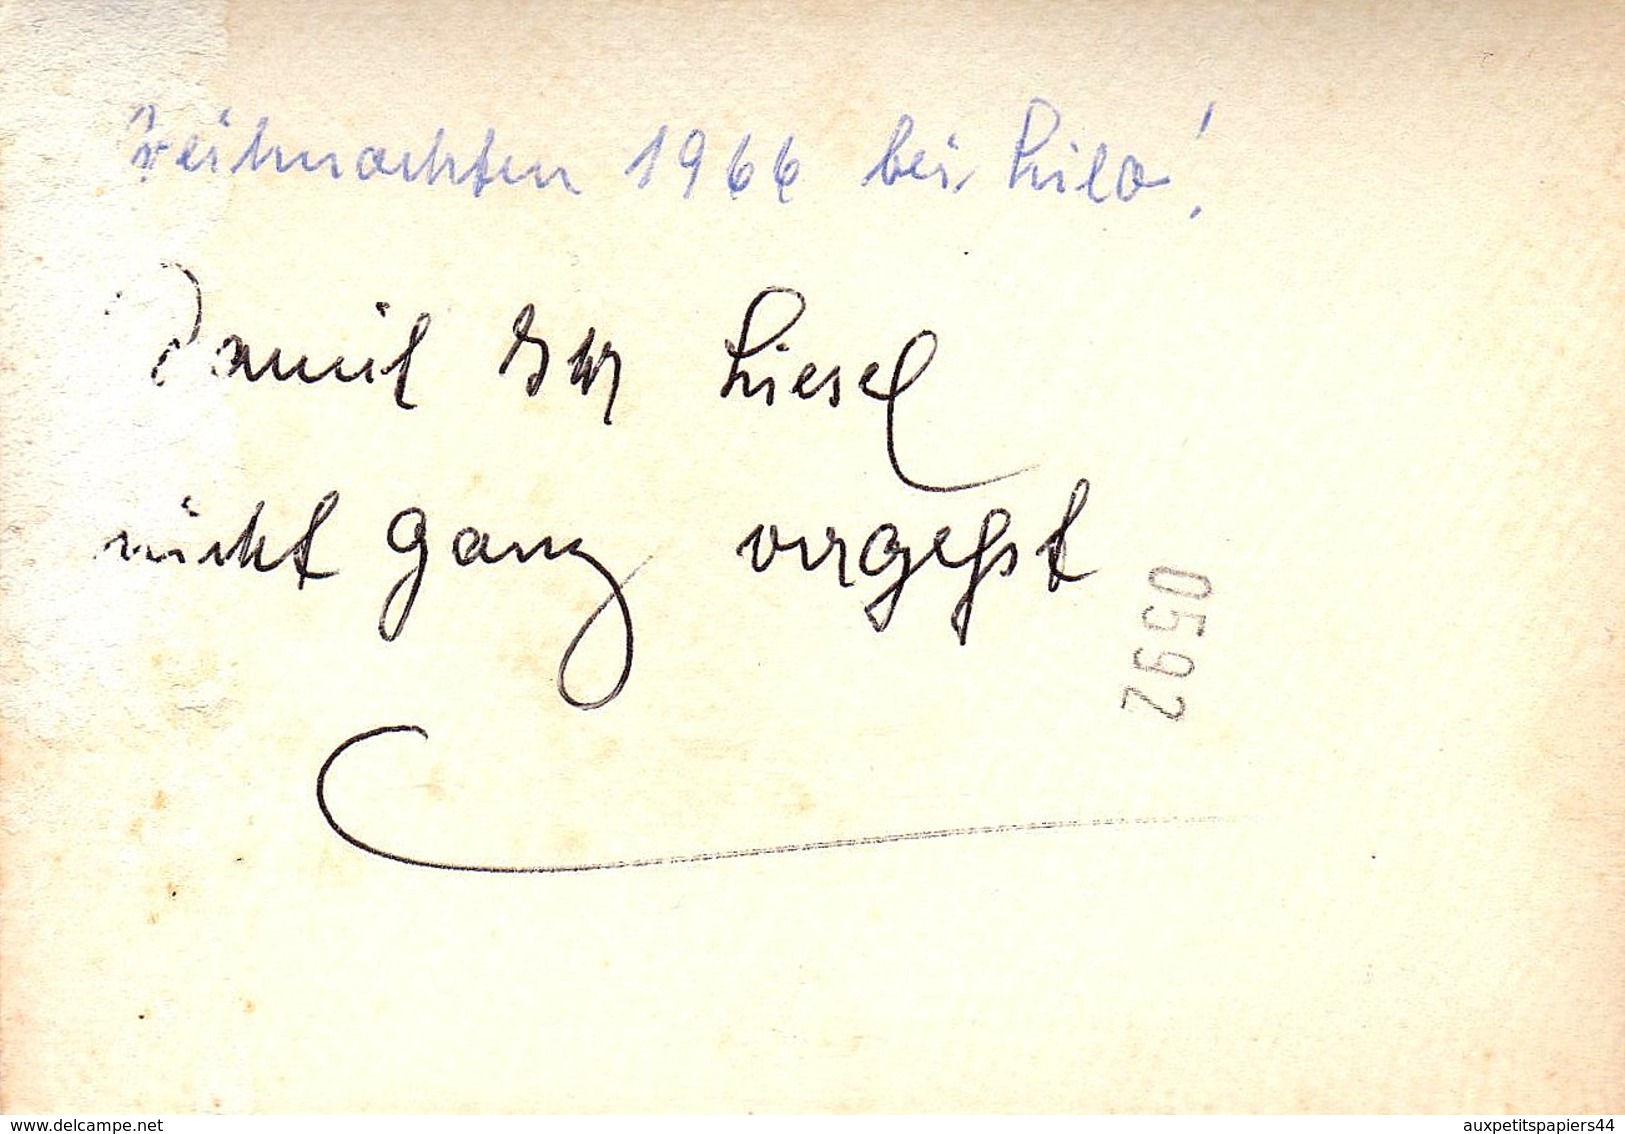 Weihnachten 1966 bei Lilo!
Damit Ihr Liesel
nicht ganz vergeßt
0592
delcampe.net
auxpetitspapiers44